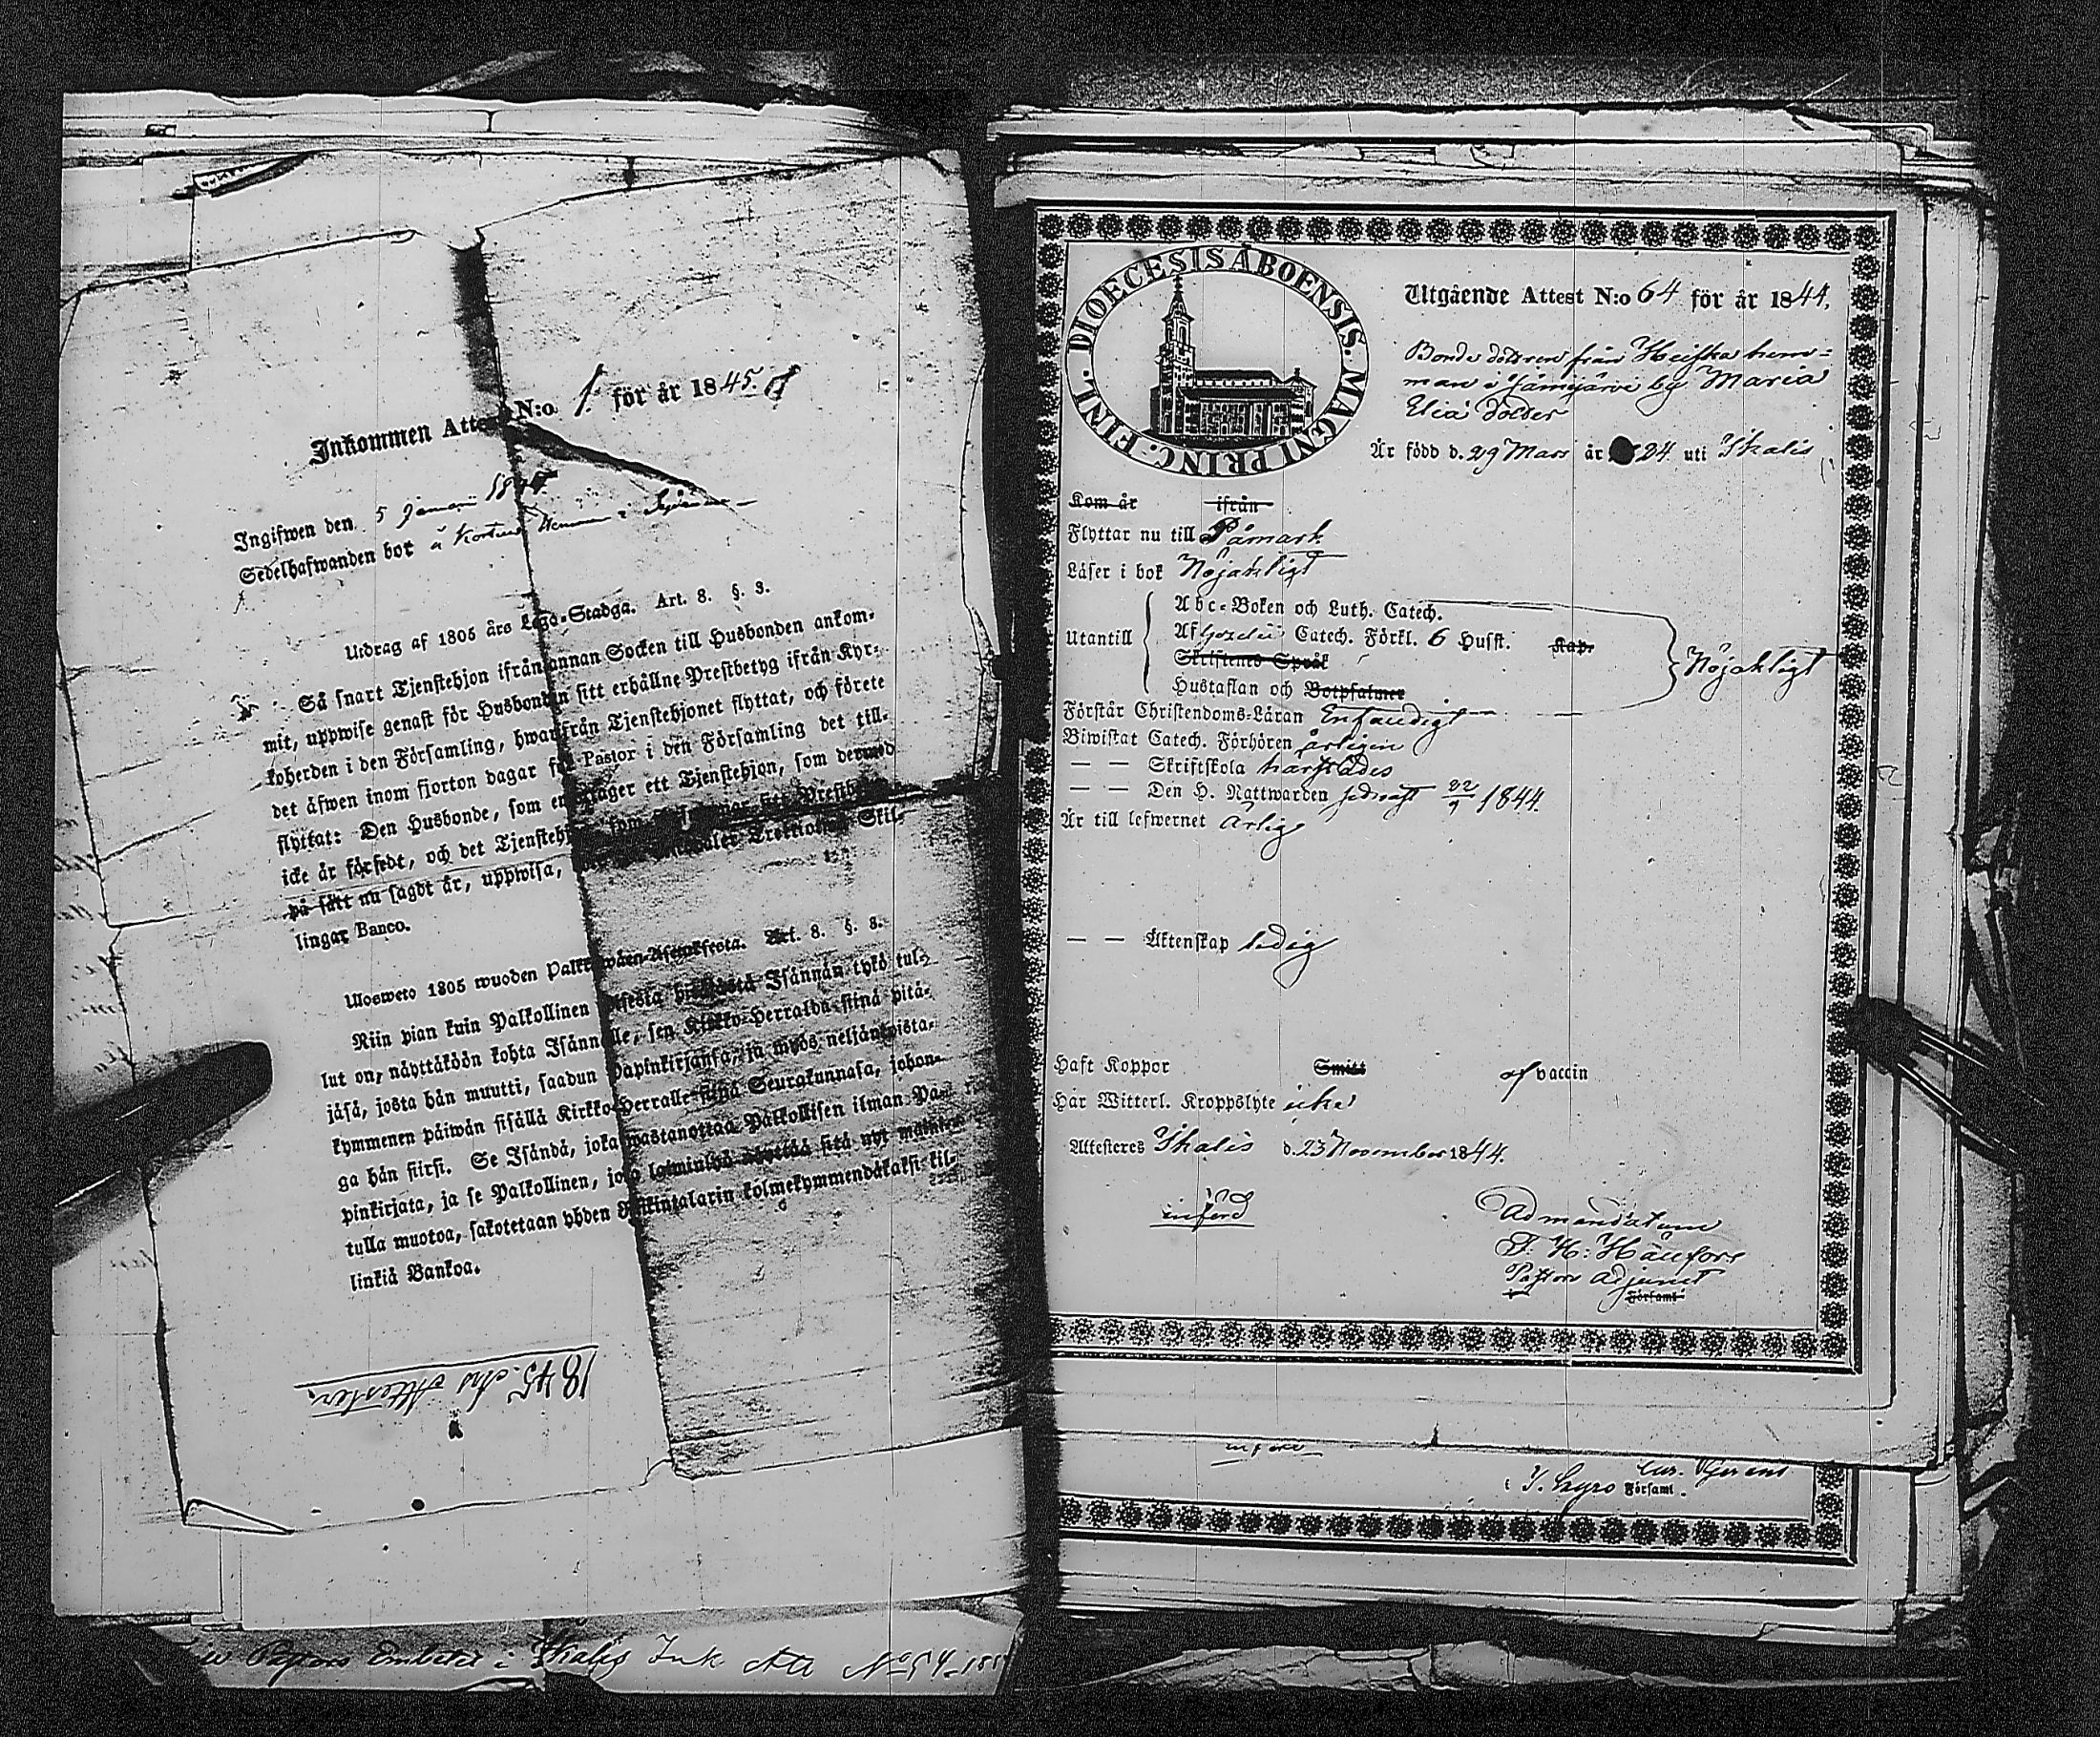 Inkommen Attest N:o 1 för år 1845.
Ingifwen den 5 Januari 1845
Sedelhafwanden bor å
Utdrag af 1805 års Lego-Stadga. Art. 8. §. 3.
Så snart Tjenstehjon ifrån annan Socken till Husbonden ankom-
mit, uppwise genast för Husbonden sitt erhållne Prestbetyg ifrån Kyr-
koherden i den Församling, hwarifrån Tjenstehjonet flyttat, och förete
det äfwen inom fjorton dagar för Pastor i den Församling det till-
flyttat: Den Husbonde, som emottager ett Tjenstehjon, som dermed
icke är försedt, och det Tjenstehjon, som
på sätt nu sagdt är, uppwisa, Skil-
lingar Banco.
Uloswето 1805 wuoden Palkkawäen-Asetuksesta. Art. 8. §. 3.
Niin pian kuin Palkollinen Isännän tykö tul-
lut on, näyttäköön kohta Isännälle, sen Kirkko-Herralda siinä pitä-
jäsä, josta hän muutti, saadun Papinkirjansa, ja myös neljäntoista-
kymmenen päiwän sisällä Kirkko-Herralle siinä Seurakunnasa, johon-
ga hän siirsi. Se Isändä, joka wastanottaa Palkollisen ilman Pa-
pinkirjata, ja se Palkollinen, joka laiminlyö näyttää sitä nyt mainit-
tulla muotoa, sakotetaan yhden Riikintalarin kolmekymmendäkaksi kil-
linkiä Bankoa.
1845 Års Attester
Pastors Embetet i Ikalis Ink Att No 54
DIOECESIS ÅBOENSIS. MAGNI PRINC. FINL.
Utgående Attest N:o 64 för år 1844.
Bonde dottren från Heiska hem-
man i Jämijärvi by Maria
Elia dotter
Är född d. 29 Mars år 24 uti Ikalis
Kom år ifrån
Flyttar nu till Påmark
Läser i bok Nöjaktigt
Utantill
Abc-Boken och Luth. Catech.
Af Catech. Förkl. 6 Husst. Kap.
Skriftenes Språk
Hustaflan och Botpsalmer
Nöjaktigt
Förstår Christendoms-Läran Enfaldigt
Biwistat Catech. Förhören årligen
— — Skriftskola härstädes
— — Den H. Nattwarden sednast 22/9 1844.
Är till lefwernet ärlig
— — Äktenskap ledig
Haft Koppor Smitt af vaccin
Har Witterl. Kroppslyte icke
Attesteres Ikalis d. 23 November 1844.
införd
Ad mandatum
Pastors adjunct
i Församl
införd
i Församl.